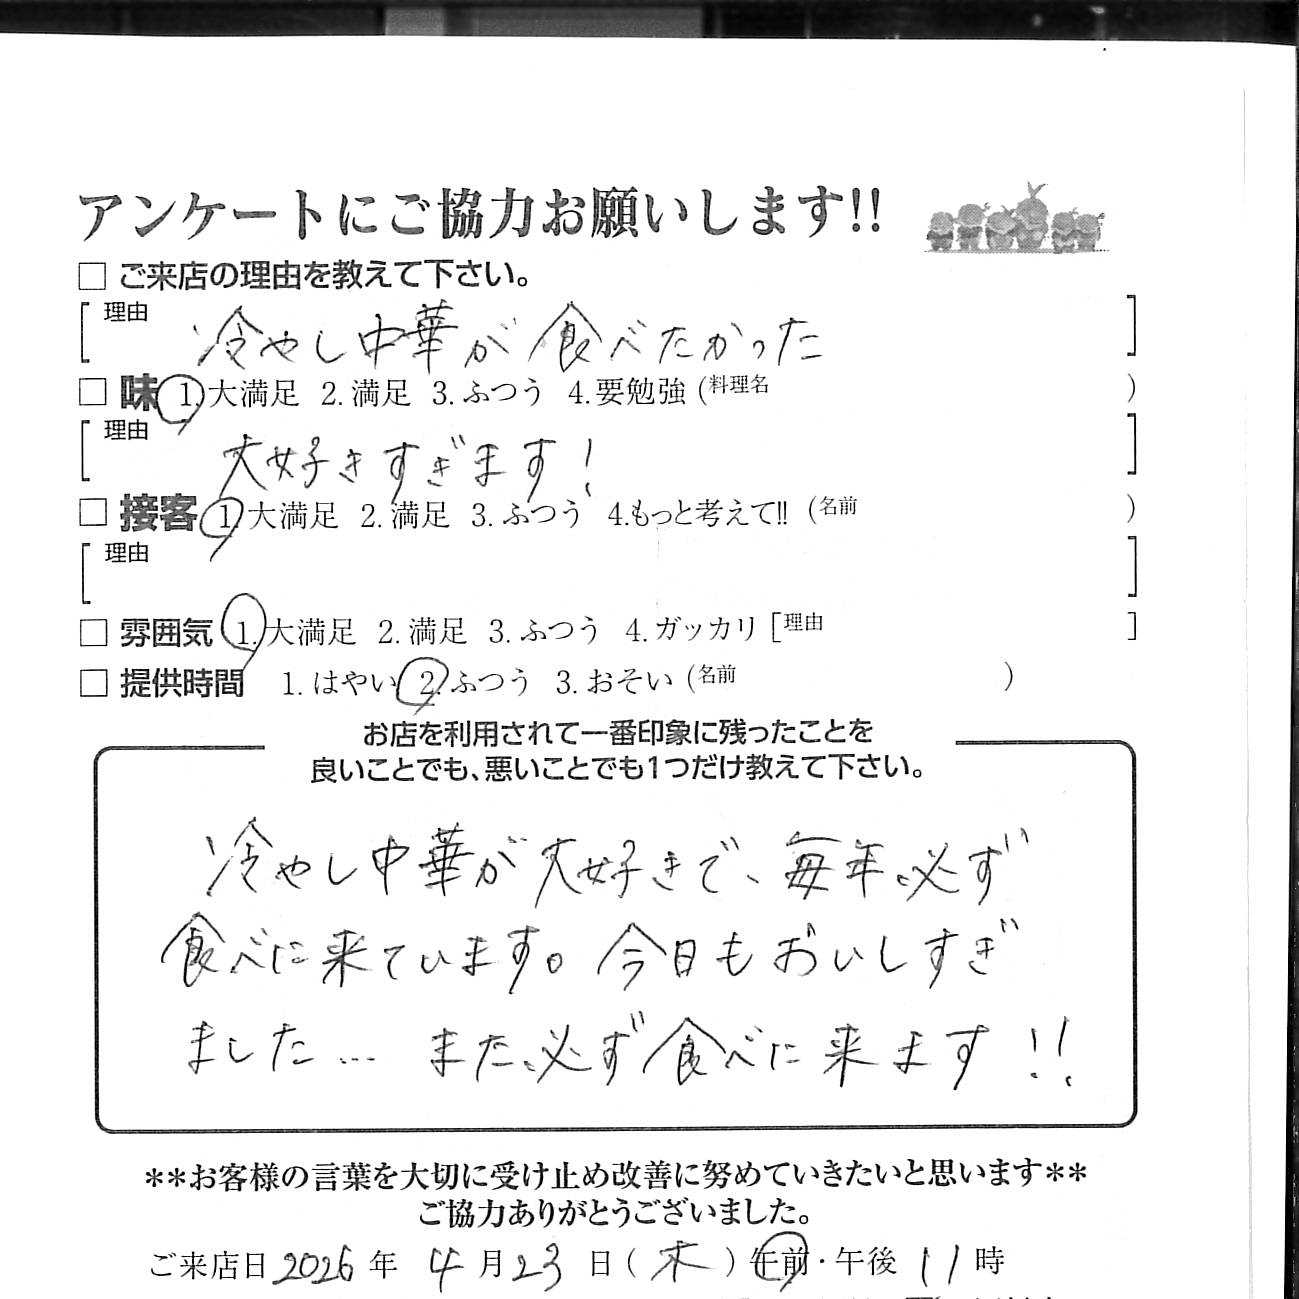 アンケートにご協力お願いします!!
□ ご来店の理由を教えて下さい。
理由 冷やし中華が食べたかった
□ 味 1.大満足 2.満足 3.ふつう 4.要勉強 (料理名 )
理由 大好きすぎます!
□ 接客 1.大満足 2.満足 3.ふつう 4.もっと考えて!! (名前 )
理由
□ 雰囲気 1.大満足 2.満足 3.ふつう 4.ガッカリ [理由 ]
□ 提供時間 1.はやい 2.ふつう 3.おそい (名前 )
お店を利用されて一番印象に残ったことを
良いことでも、悪いことでも1つだけ教えて下さい。
冷やし中華が大好きで、毎年必ず
食べに来ています。今日もおいしすぎ
ました… また必ず食べに来ます!!
**お客様の言葉を大切に受け止め改善に努めていきたいと思います**
ご協力ありがとうございました。
ご来店日 2026 年 4 月 23 日 (木) 午前・午後 11 時